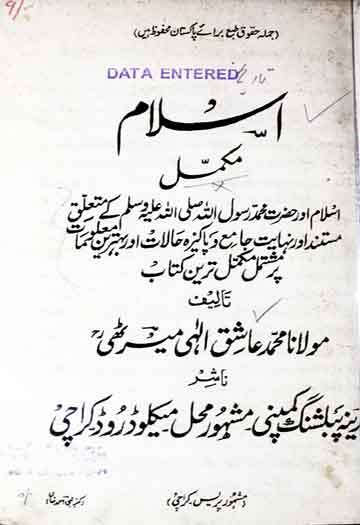 (جملہ حقوق طبع برائے پاکستان محفوظ ہیں)
DATA ENTERED
اسلام
مکمل
اسلام اور حضرت محمد رسول اللہ صلی اللہ علیہ وسلم کے متعلق
مستند اور نہایت جامع و پاکیزہ حالات اور بہترین معلومات
پر مشتمل مکمل ترین کتاب
تالیف
مولانا محمد عاشق الٰہی میرٹھی رح
ناشر
مدینہ پبلشنگ کمپنی مشہور محل میکلوڈ روڈ کراچی
(مشہور پریس کراچی)